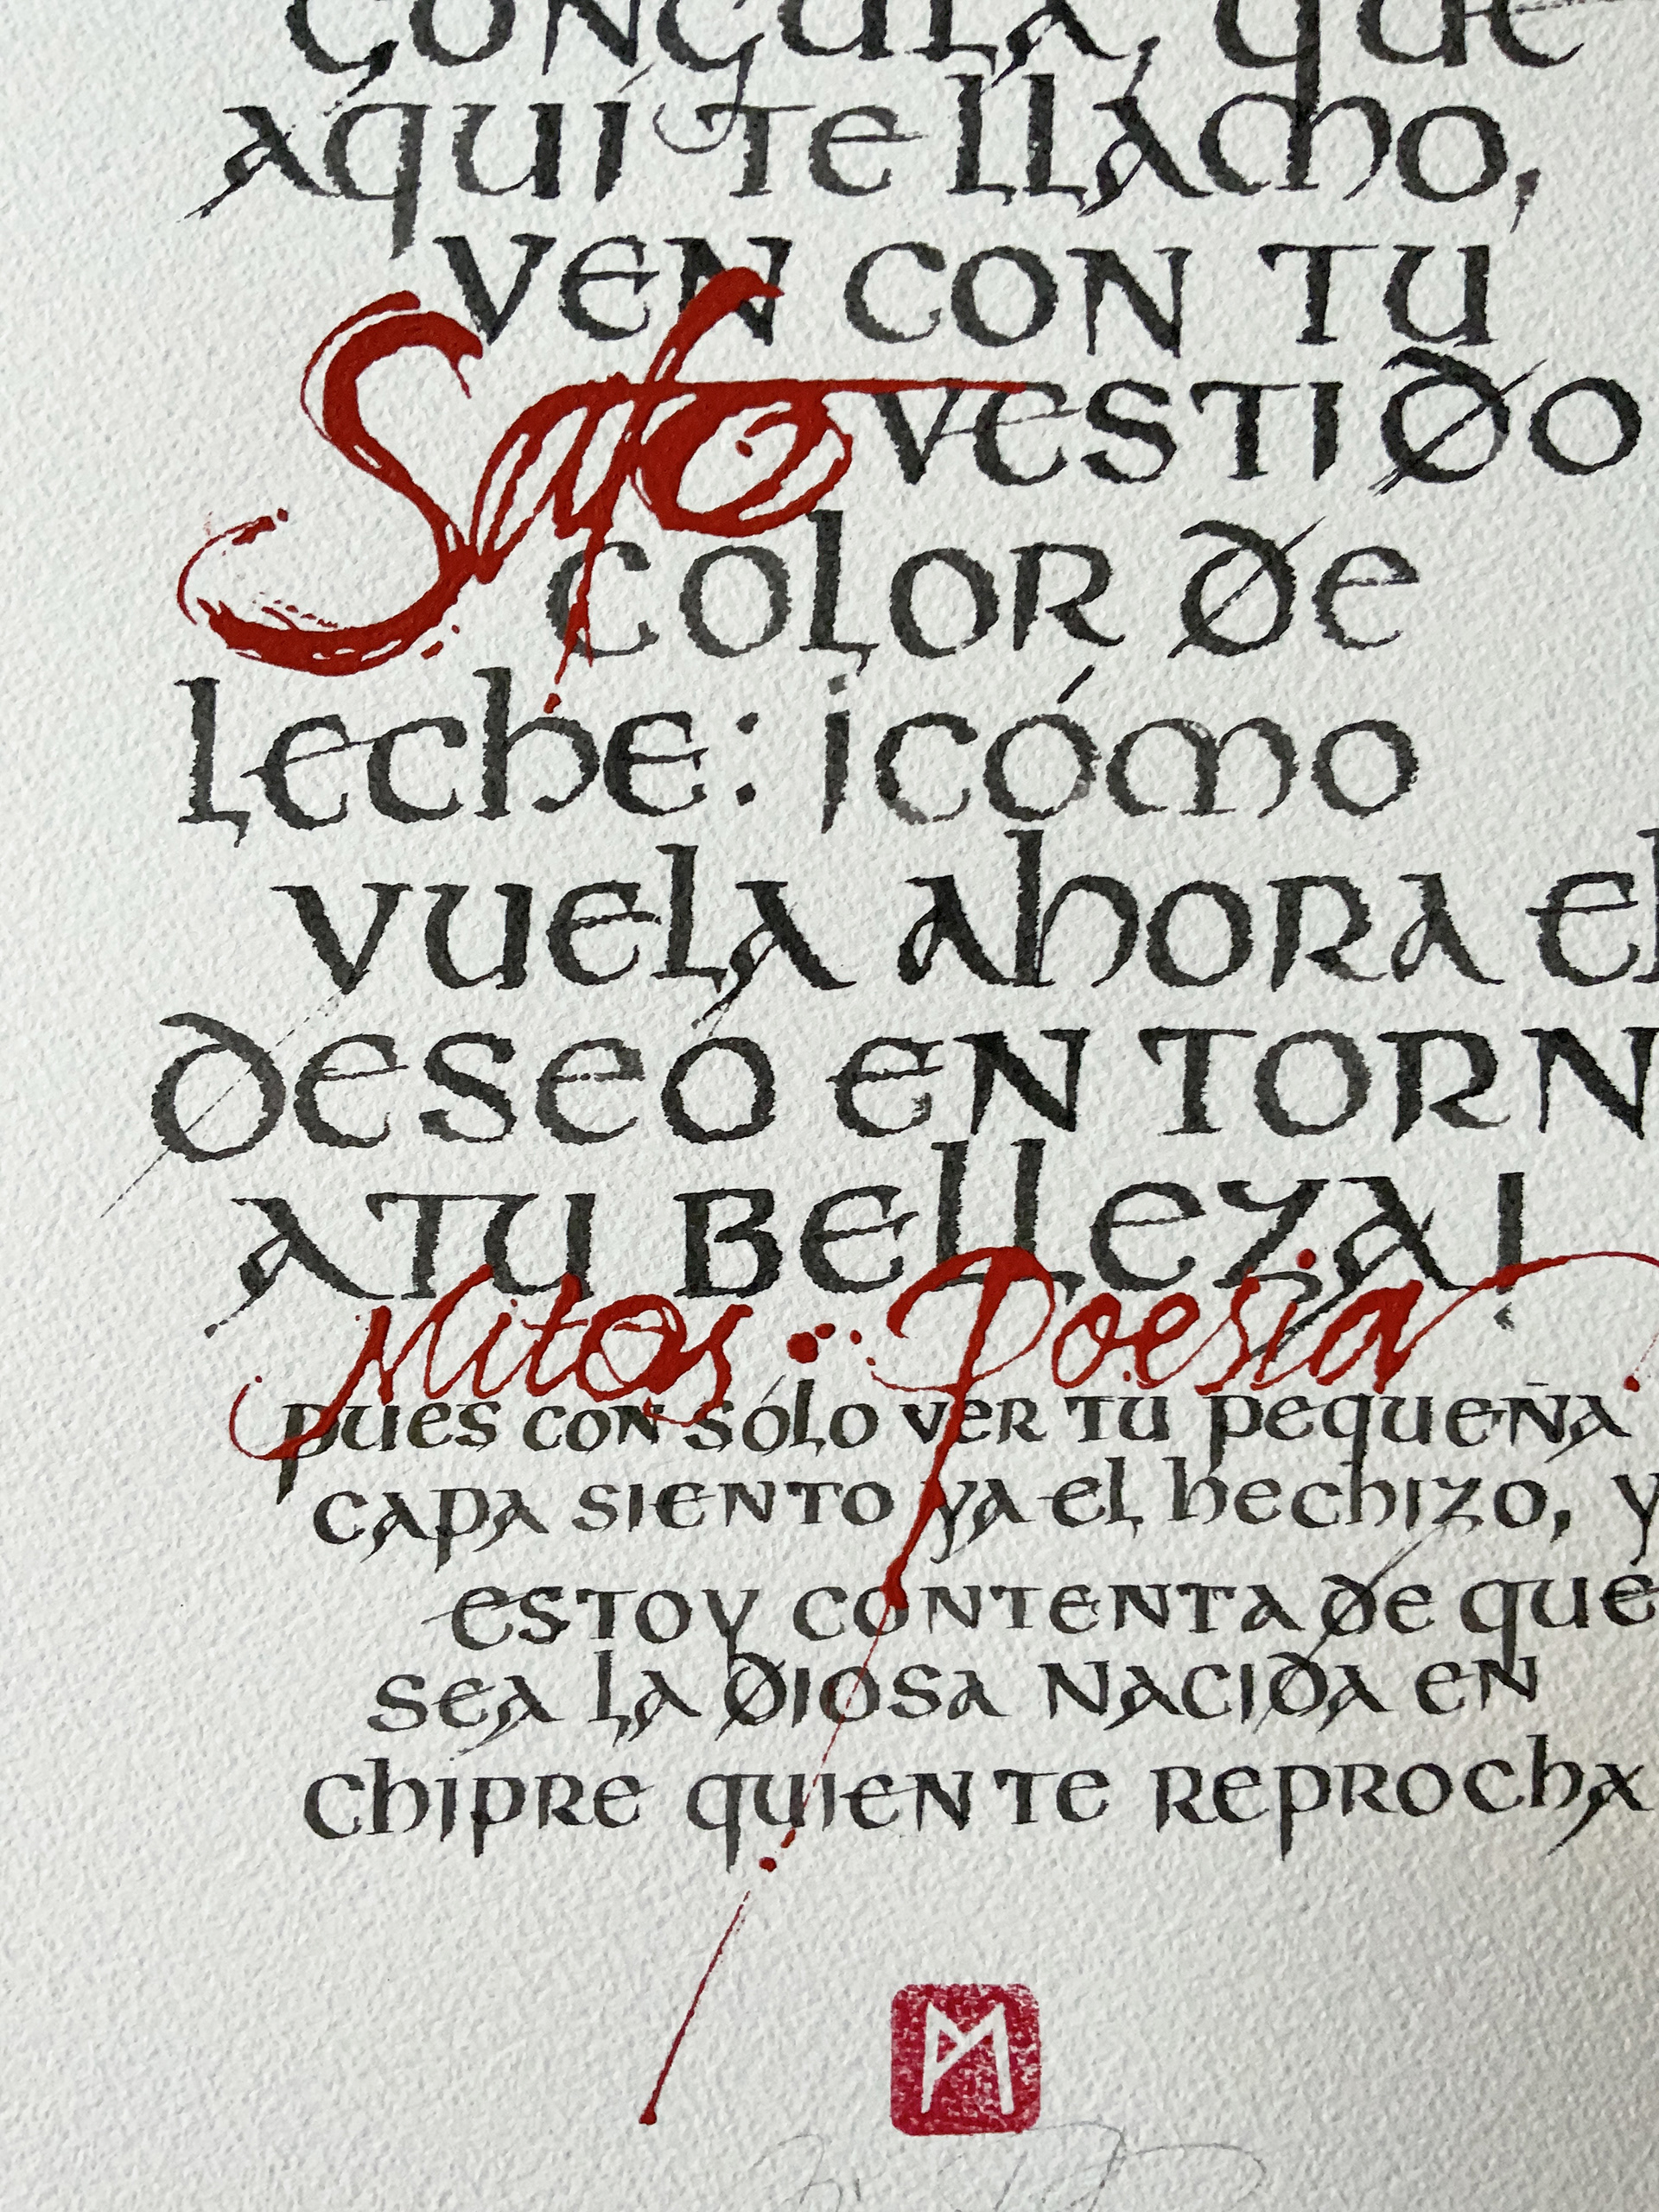 GÓNGULA, QUE
AQUÍ TE LLAMO,
VEN CON TU
Safo
VESTIDO
COLOR DE
LECHE: ¡CÓMO
VUELA AHORA EL
DESEO EN TORN
A TU BELLEZA!
Mitos Poesía
PUES CON SÓLO VER TU PEQUEÑA
CAPA SIENTO YA EL HECHIZO, Y
ESTOY CONTENTA DE QUE
SEA LA DIOSA NACIDA EN
CHIPRE QUIEN TE REPROCHA
M